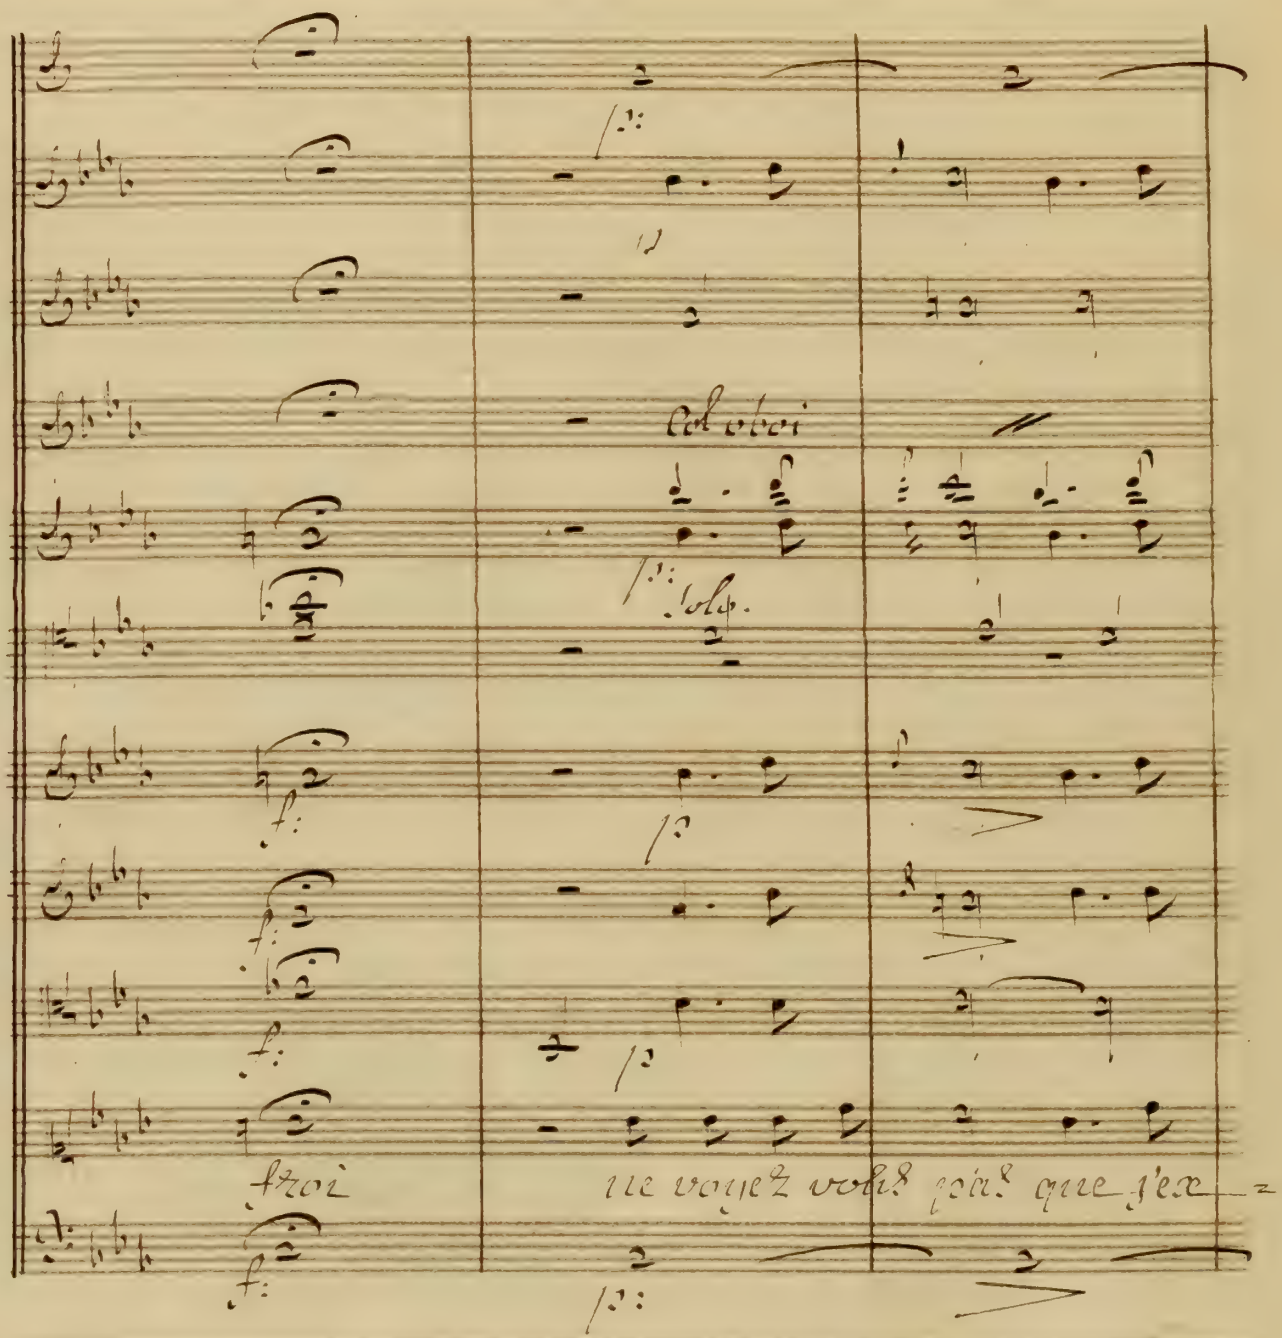 p:
p
Col oboi
p:
Solo.
f: p
f:
f: p
froi ne voyez vous pas que j'ex=
f: p: